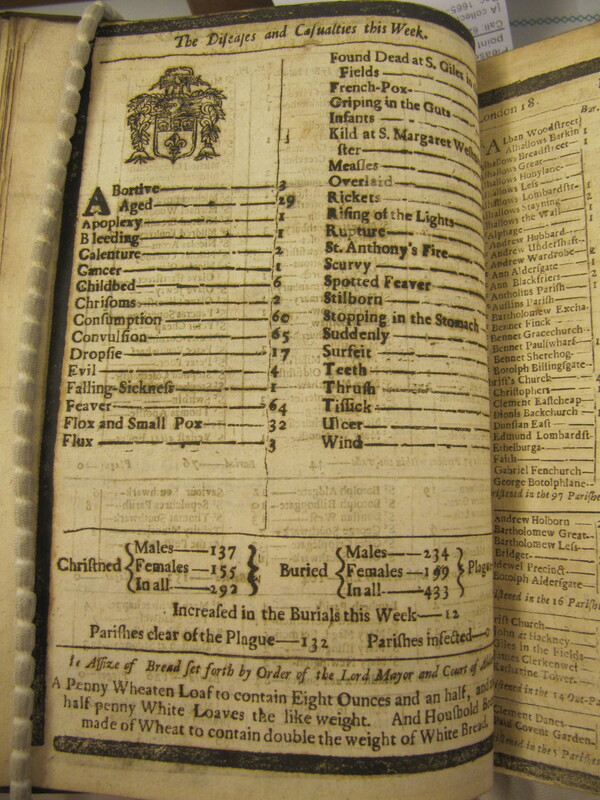 The Diſeaſes and Caſualties this Week.
ABortive 3
Aged 29
Apoplexy 1
Bleeding 1
Calenture 2
Cancer 1
Childbed 6
Chriſoms 2
Conſumption 60
Convulſion 65
Dropſie 17
Evil 4
Falling-Sickneſs 1
Feaver 64
Flox and Small Pox 32
Flux 3
Found Dead at S. Giles in
Fields
French-Pox
Griping in the Guts
Infants
Kild at S. Margaret
ſter
Meaſles
Overlaid
Rickets
Riſing of the Lights
Rupture
St. Anthony's Fire
Scurvy
Spotted Feaver
Stilborn
Stopping in the Stomach
Suddenly
Surfeit
Teeth
Thruſh
Tiſſick
Ulcer
Wind
Chriſtned
Males 137
Females 155
In all 292
Buried
Males 234
Females 199
In all 433
Plague
Increaſed in the Burials this Week 12
Pariſhes clear of the Plague 132 Pariſhes infected 0
Aſſize of Bread ſet forth by Order of the Lord Mayor and Court of
A Penny Wheaten Loaf to contain Eight Ounces and an half, and
half-penny White Loaves the like weight. And Houſhold
made of Wheat to contain double the weight of White Bread.
London 18.
Bur.
Alban Woodſtreet
lhallows Barkin
lhallows Breadſtreet
lhallows Great
lhallows Honylane
lhallows Leſs
lhallows Lombardſtr
lhallows Stayning
lhallows the Wall
Alphage
Andrew Hubbard
Andrew Underſhaft
Andrew Wardrobe
Ann Alderſgate
Ann Blackfriers
Antholins Pariſh
Auſtins Pariſh
Bartholomew Excha.
Bennet Finck
Bennet Gracechurch
Bennet Paulſwharf
Bennet Sherehog
Botolph Billingſgate
hriſt's Church
Chriſtophers
Clement Eaſtcheap
Dionis Backchurch
Dunſtan Eaſt
Edmund Lombardſt
Ethelburga
Faith
Gabriel Fenchurch
George Botolphlane
riſtened in the 97 Pariſhes
Andrew Holborn
Bartholomew Great
Bartholomew Leſs
Bridget
Precinct
Botolph Alderſgate
riſtened in the 16 Pariſhes
riſt Church
John at Hackney
Giles in the Fields
James Clerkenwel
Katharine Tower
in the 14 Out-Pa
Clement Danes
Paul Covent Garden
in the 5 Pariſhes